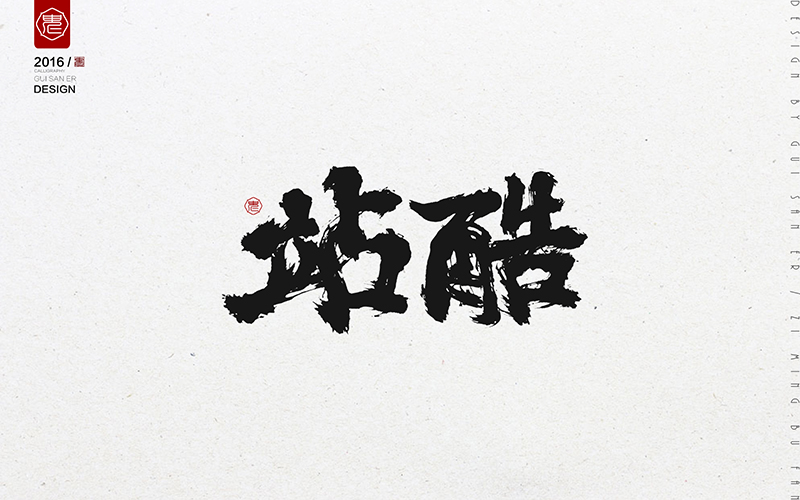 2016 /
CALLIGRAPHY
GUI SAN ER
DESIGN
站酷
DESIGN BY GUI SAN ER / ZI MING.BU FAN